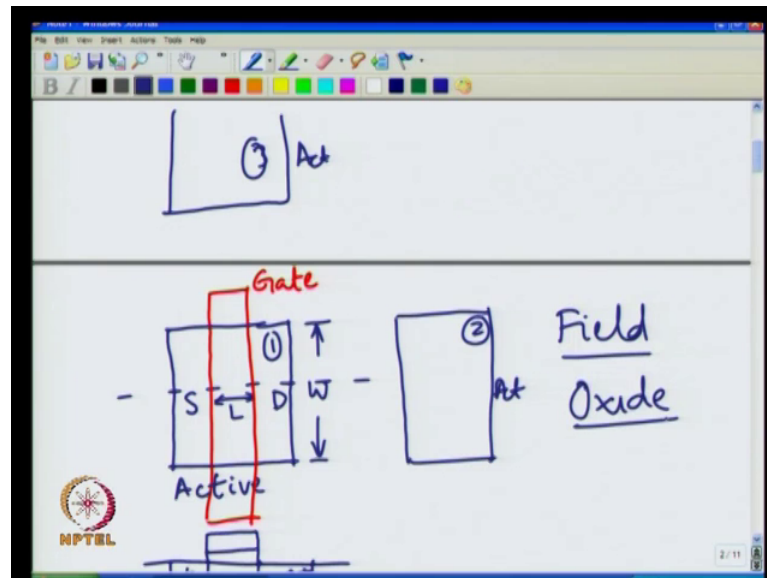 Note1 - Windows Journal
File Edit View Insert Actions Tools Help
B I
3 Act
Gate
1
2
Field
S L D W
Act
Oxide
Active
NPTEL
2 / 11